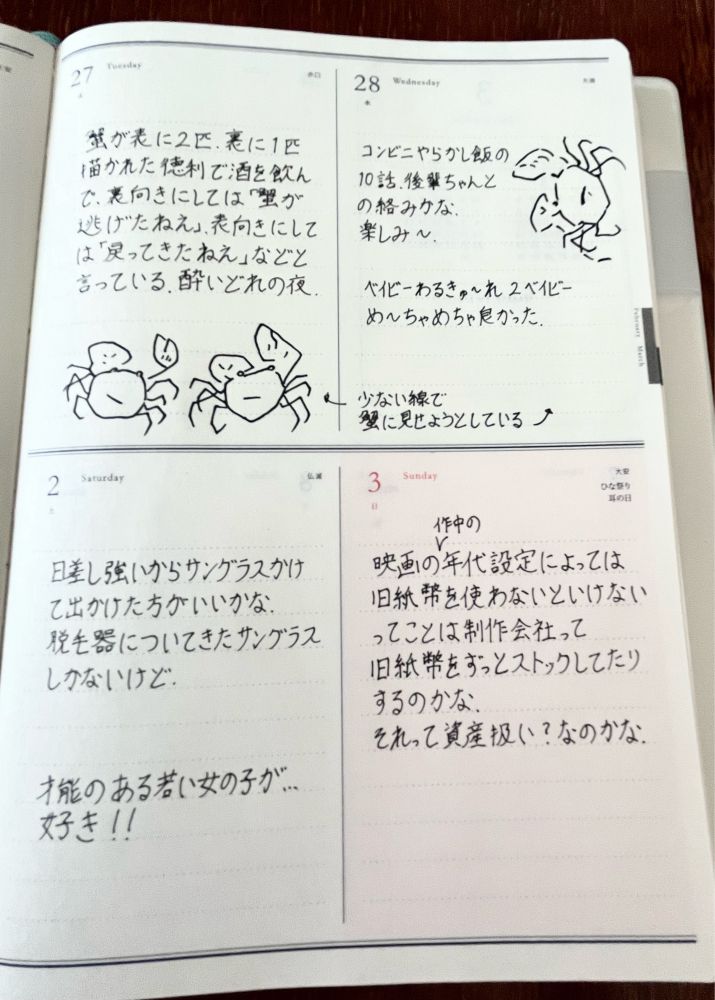 27 Tuesday
赤口
火
蟹が表に2匹、裏に1匹
描かれた徳利で酒を飲ん
で、裏向きにしては「蟹が
逃げたねえ」、表向きにして
は「戻ってきたねえ」などと
言っている。酔いどれの夜.
28 Wednesday
先勝
水
コンビニやらかし飯の
10話、後輩ちゃんと
の絡みかな.
楽しみ〜.
ベイビーわるきゅ〜れ 2ベイビー
め〜ちゃめちゃ良かった.
少ない線で
蟹に見せようとしている
February March
2 Saturday
仏滅
土
日差し強いからサングラスかけ
て出かけた方がいいかな.
脱毛器についてきたサングラス
しかないけど.
才能のある若い女の子が…
好き!!
3 Sunday
大安
ひな祭り
耳の日
日
作中の
映画の年代設定によっては
旧紙幣を使わないといけない
ってことは制作会社って
旧紙幣をずっとストックしてたり
するのかな.
それって資産扱い?なのかな.